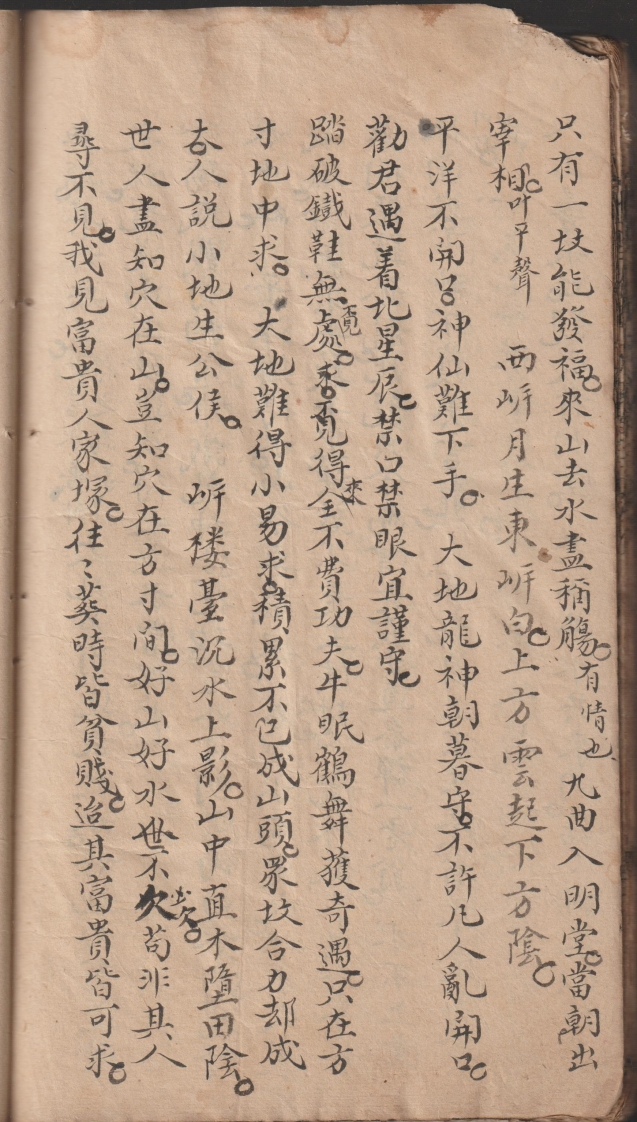 只有一坟能發福。來山去水盡稱觴。有情也 九曲入明堂。當朝出
宰相。叶平聲 西岍月生東岍白。上方雲起下方陰。
平洋不開口。神仙難下手。 大地龍神朝暮守。不許凡人亂開口。
勸君遇着北星辰。禁口禁眼宜謹守。
踏破鐵鞋無處覓。來覓得來全不費功夫。牛眠鶴舞獲奇遇。只在方
寸地中求。 大地難得小易求。積累不已成山頭。眾坟合力却成
大。人說小地生公侯。 岍楼臺沉水上影。山中直木墮田陰。
世人盡知穴在山。豈知穴在方寸間。好山好水世不欠必欠。苟非其人
尋不見。我見富貴人家塚。往〻葬時皆貧賤。迨其富貴皆可求。